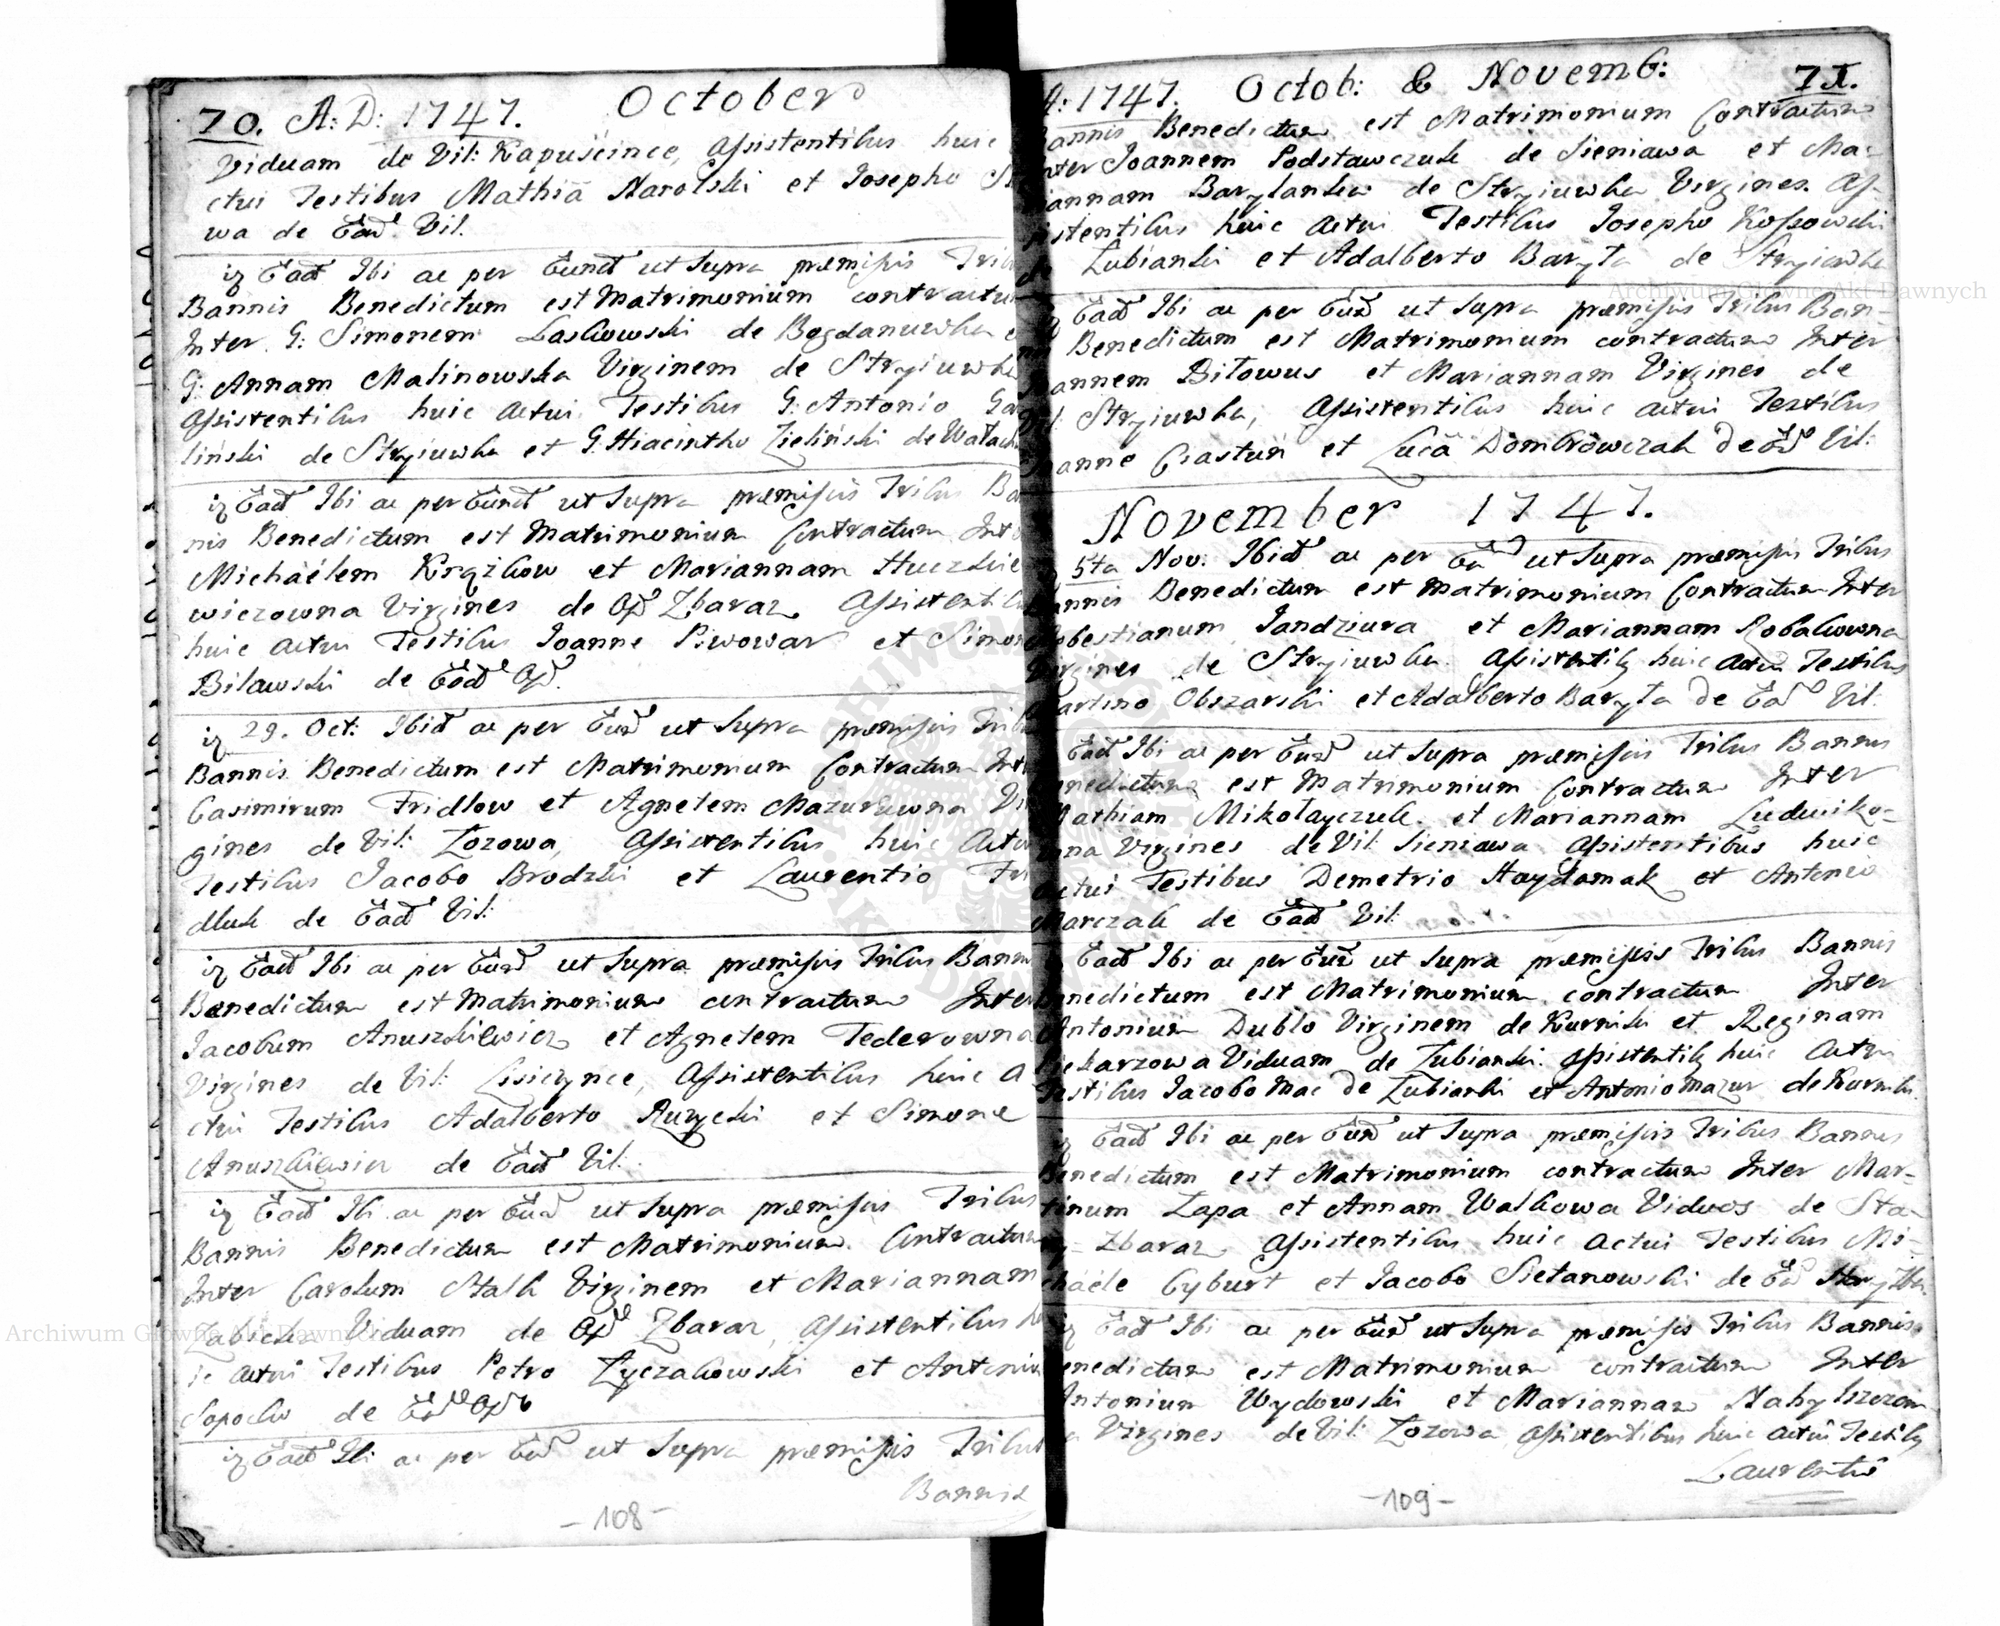 70. A: D: 1747. October
Viduam de Vil: Kapuścince, assistentibus huic
ctui Testibus Mathiâ Narolski et Josepho
wa de Ead Vil.
Ead Ibi ac per Eund ut Supra præmissis
Bannis Benedictum est Matrimonium contractu
Inter G: Simonem Laskowski de Bogdanuwka
G: Annam Malinowska Virginem de Stryiuwka
Assistentibus huic actui Testibus G: Antonio
liński de Stryiuwka et G. Hiacintho Zieliński de
Ead Ibi ac per Eund ut Supra præmissis Tribus Ban
nis Benedictum est Matrimonium Contractum Inter
Michäelem Krążkow et Mariannam Huczkie
wiczowna Virgines de Opd Zbaraz Assistentibus
huic actui Testibus Joanne Piwowar et Simone
Bilawski de Eod Opd.
29. Oct: Ibid ac per Eund ut Supra præmissis Tribus
Bannis Benedictum est Matrimonium Contractum Inter
Casimirum Fridlow et Agnetem Mazuruwna Vir
gines de Vil: Zozowa, Assistentibus huic Actui
Testibus Jacobo Brodzki et Laurentio Fri
dluk de Ead Vil:
Ead Ibi ac per Eund ut Supra præmissis Tribus Bannis
Benedictum est Matrimonium contractum Inter
Jacobum Anuszkiewicz et Agnetem Federowna
Virgines de Vil: Lisiczynce, Assistentibus huic A
ctui Testibus Adalberto Ruzycki et Simone
Anuszkiewicz de Ead Vil:
Ead Ibi ac per Eund ut Supra præmissis Tribus
Bannis Benedictum est Matrimonium Contractum
Inter Carolum Stalk Virginem et Mariannam
Zabicka Viduam de Opd Zbaraz, Assistentibus
actui Testibus Petro Zyczakowski et Antonio
Sopocko de Eod Opd
Ead Ibi ac per Eund ut Supra præmissis Tribus
Bannis
-108-
A: 1747. Octob: & Novemb: 71.
Bannis Benedictum est Matrimonium Contractum
Inter Joannem Podstawczuk de Sieniawa et Ma-
riannam Barylanka de Stryiuwka Virgines. As-
sistentibus huic actui Testibus Josepho Kossowski
de Lubianki et Adalberto Baryła de Stryiuwka
Ead Ibi ac per Eund ut Supra præmissis Tribus Ban-
nis Benedictum est Matrimonium contractum Inter
Joannem Bilowus et Mariannam Virgines de
Vil: Stryiuwka, Assistentibus huic actui Testibus
Joanne Chastuń et Lucâ Dombrowczak de Ead Vil:
November 1747.
5ta Nov: Ibid ac per Eund ut Supra præmissis Tribus
Bannis Benedictum est Matrimonium Contractum Inter
Sobestianum Jandziura et Mariannam Robakowna
Virgines de Stryiuwka. Assistentibq huic actui Testibus
Martino Obszarski et Adalberto Baryła de Ead Vil:
Ead Ibi ac per Eund ut Supra præmissis Tribus Bannis
Benedictum est Matrimonium Contractum Inter
Mathiam Mikołayczuk et Mariannam Ludwiko-
wna Virgines de Vil Sieniawa Assistentibus huic
actui Testibus Demetrio Haydamak et Antonio
Marczak de Ead Vil:
Ead Ibi ac per Eund ut Supra præmissis Tribus Bannis
Benedictum est Matrimonium contractum Inter
Antonium Dublo Virginem de Kurniki et Reginam
Piekarzowa Viduam de Lubianki Assistentibq huic actui
Testibus Jacobo Mac de Lubianki et Antonio Mazur de Kurniki
Ead Ibi ac per Eund ut Supra præmissis Tribus Bannis
Benedictum est Matrimonium contractum Inter Mar-
tinum Zapa et Annam Walkowa Viduos de Sta
ry- Zbaraz Assistentibus huic actui Testibus Mi-
chäele Cyburt et Jacobo Sietanowski de
Ead Ibi ac per Eund ut Supra præmissis Tribus Bannis
Benedictum est Matrimonium contractum Inter
Antonium Wydowski et Mariannam
Virgines de Vil: Zozowa Assistentibus huic actui Testibq
Laurentio
-109-
Archiwum Główne Akt Dawnych
Archiwum Główne Akt Dawnych